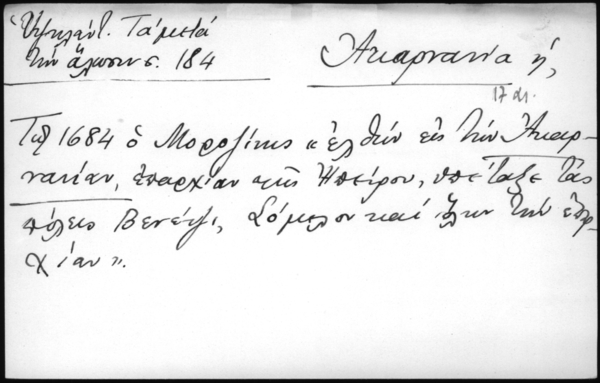 Ὑψηλάντ. Τὰ μετὰ
τὴν ἅλωσιν σ. 184
Ἀκαρνανία ἡ,
17 αι.
Τῷ 1684 ὁ Μοροζίνης « ἐλθὼν εἰς τὴν Ἀκαρ-
νανίαν, ἐπαρχίαν τῆς Ἠπείρου, ὑπέταξε τὰς
πόλεις καὶ ὅλην τὴν ἐπαρ-
χίαν ».